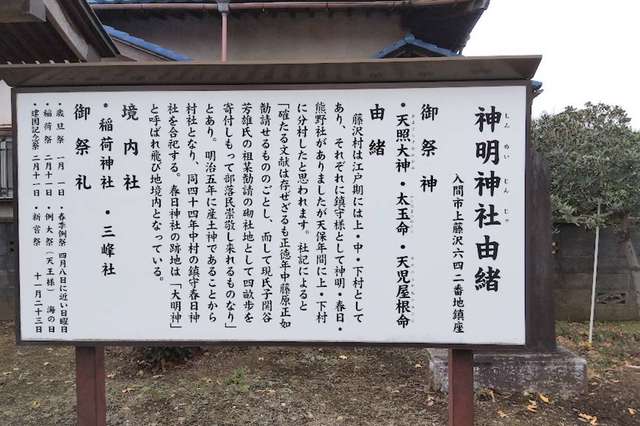 神明神社由緒
しんめいじんじゃ
入間市上藤沢六四二番地鎮座
御祭神
・天照大神・太玉命・天児屋根命
由緒
藤沢村は江戸期には上・中・下村として
あり、それぞれに鎮守様として神明・春日・
熊野社がありましたが天保年間に上・下村
に分村したと思われます。社記によると
「確たる文献は存せざるも正徳年中藤原正如
勧請せるもののごとし、而して現氏子関谷
芳雄氏の祖某勧請の砌社地として四畝歩を
寄付しもって部落民崇敬し来れるものなり」
とあり。明治五年に産土神であることから
村社となり、同四十四年中村の鎮守春日神
社を合祀する。春日神社の跡地は「大明神」
と呼ばれ飛び地境内となっている。
境内社
・稲荷神社・三峰社
御祭礼
・歳旦祭 一月一日 ・春季例祭 四月八日に近い日曜日
・稲荷祭 二月十一日 ・例大祭(天王様) 海の日
・建国記念祭 二月十一日 ・新嘗祭 十一月二十三日